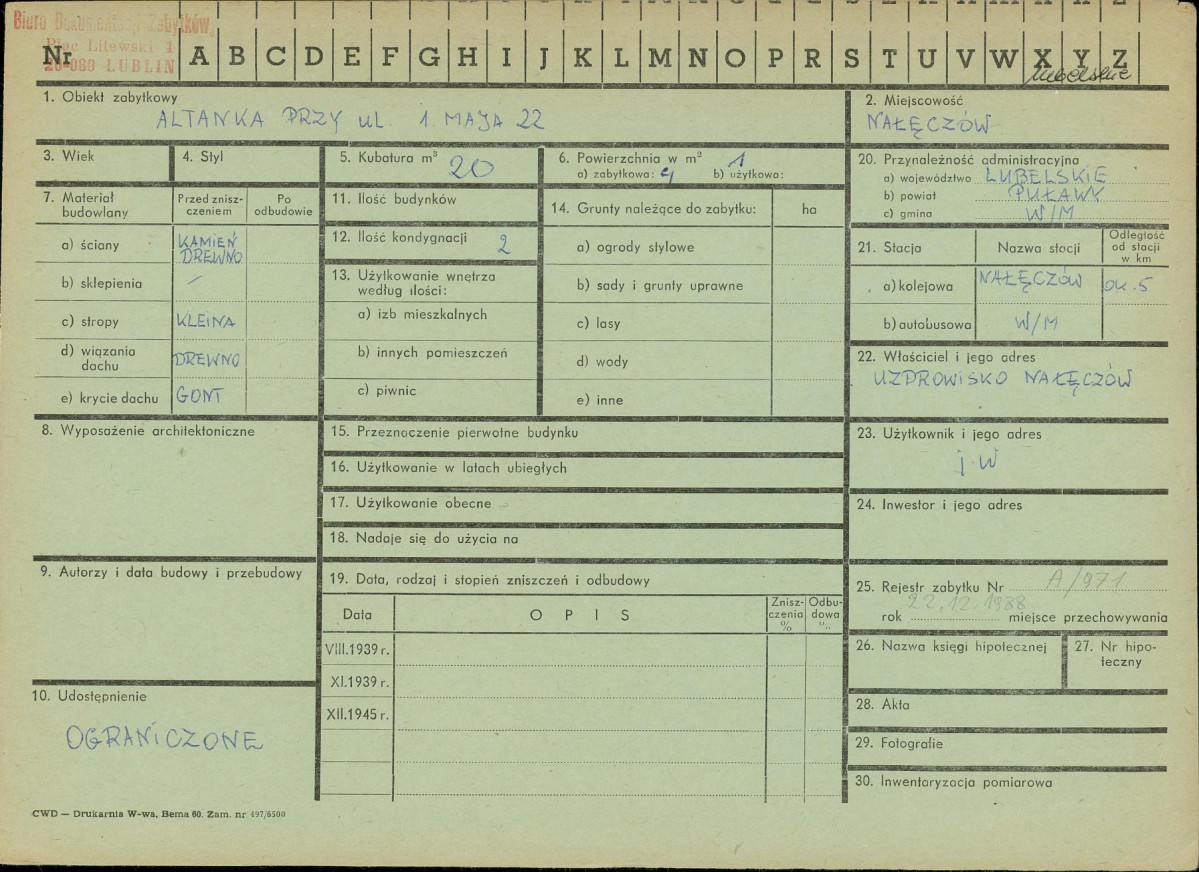 Biuro Dokumentacji Zabytków
Plac Litewski 1
20-080 LUBLIN
Nr A B C D E F G H I J K L M N O P R S T U V W X Y Z
lubelskie
1. Obiekt zabytkowy
ALTANKA PRZY ul. 1. MAJA 22
2. Miejscowość
NAŁĘCZÓW
3. Wiek
4. Styl
5. Kubatura m³ 20
6. Powierzchnia w m²
a) zabytkowa: 4 b) użytkowa: 1
7. Materiał budowlany
Przed zniszczeniem
Po odbudowie
a) ściany KAMIEŃ DREWNO
b) sklepienia –
c) stropy KLEINA
d) wiązania dachu DREWNO
e) krycie dachu GONT
11. Ilość budynków
12. Ilość kondygnacji 2
13. Użytkowanie wnętrza
według ilości:
a) izb mieszkalnych
b) innych pomieszczeń
c) piwnic
14. Grunty należące do zabytku: ha
a) ogrody stylowe
b) sady i grunty uprawne
c) lasy
d) wody
e) inne
20. Przynależność administracyjna
a) województwo LUBELSKIE
b) powiat PUŁAWY
c) gmina W/M
21. Stacja
Nazwa stacji
Odległość od stacji w km
a) kolejowa NAŁĘCZÓW ok. 5
b) autobusowa W/M
22. Właściciel i jego adres
UZDROWISKO NAŁĘCZÓW
8. Wyposażenie architektoniczne
15. Przeznaczenie pierwotne budynku
16. Użytkowanie w latach ubiegłych
17. Użytkowanie obecne
18. Nadaje się do użycia na
23. Użytkownik i jego adres
j.w
24. Inwestor i jego adres
9. Autorzy i data budowy i przebudowy
19. Data, rodzaj i stopień zniszczeń i odbudowy
Data
OPIS
Zniszczenia %
Odbudowa %
VIII.1939 r.
XI.1939 r.
XII.1945 r.
25. Rejestr zabytku Nr A/971
rok 22.12.1988 miejsce przechowywania
26. Nazwa księgi hipotecznej
27. Nr hipoteczny
10. Udostępnienie
OGRANICZONE
28. Akta
29. Fotografie
30. Inwentaryzacja pomiarowa
CWD — Drukarnia W-wa, Bema 60. Zam. nr 497/6500